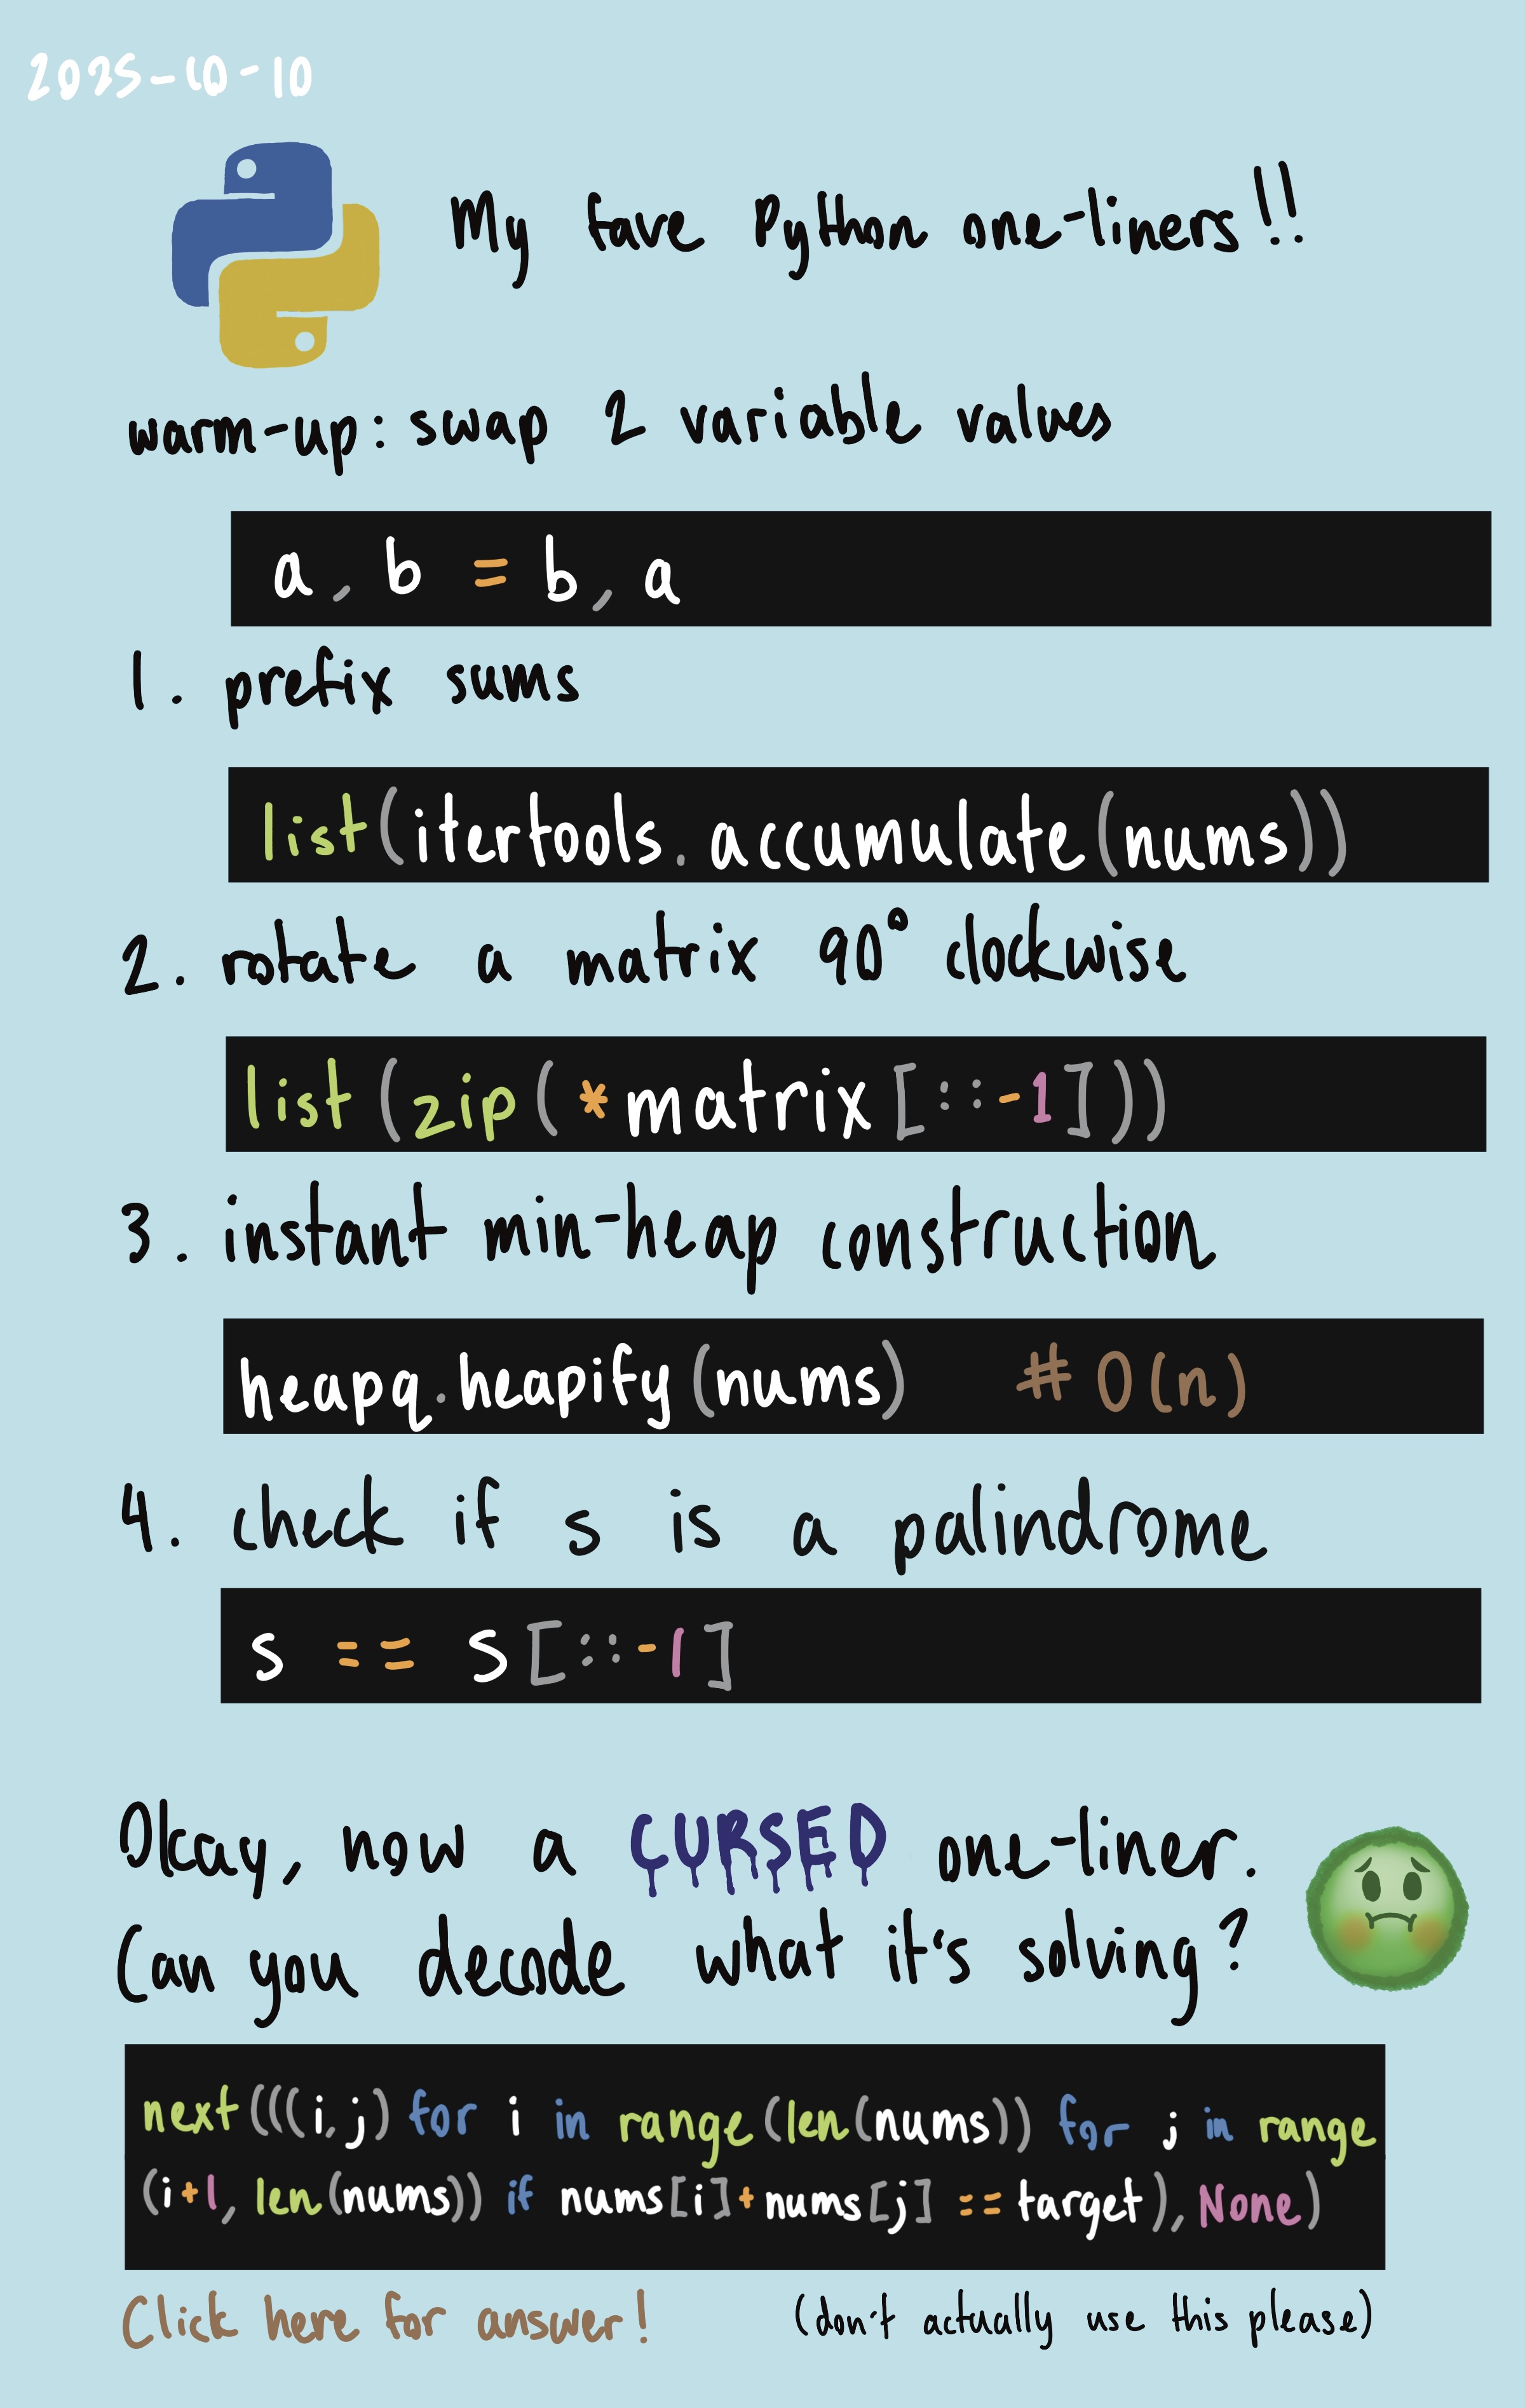 2025-10-10
My fave Python one-liners!!
warm-up: swap 2 variable values
a, b = b, a
1. prefix sums
list(itertools.accumulate(nums))
2. rotate a matrix 90° clockwise
list(zip(*matrix[::-1]))
3. instant min-heap construction
heapq.heapify(nums) # O(n)
4. check if s is a palindrome
s == s[::-1]
Okay, now a CURSED one-liner.
Can you decode what it's solving?
next(((i,j) for i in range(len(nums)) for j in range
(i+1, len(nums)) if nums[i]+nums[j] == target), None)
Click here for answer! (don't actually use this please)